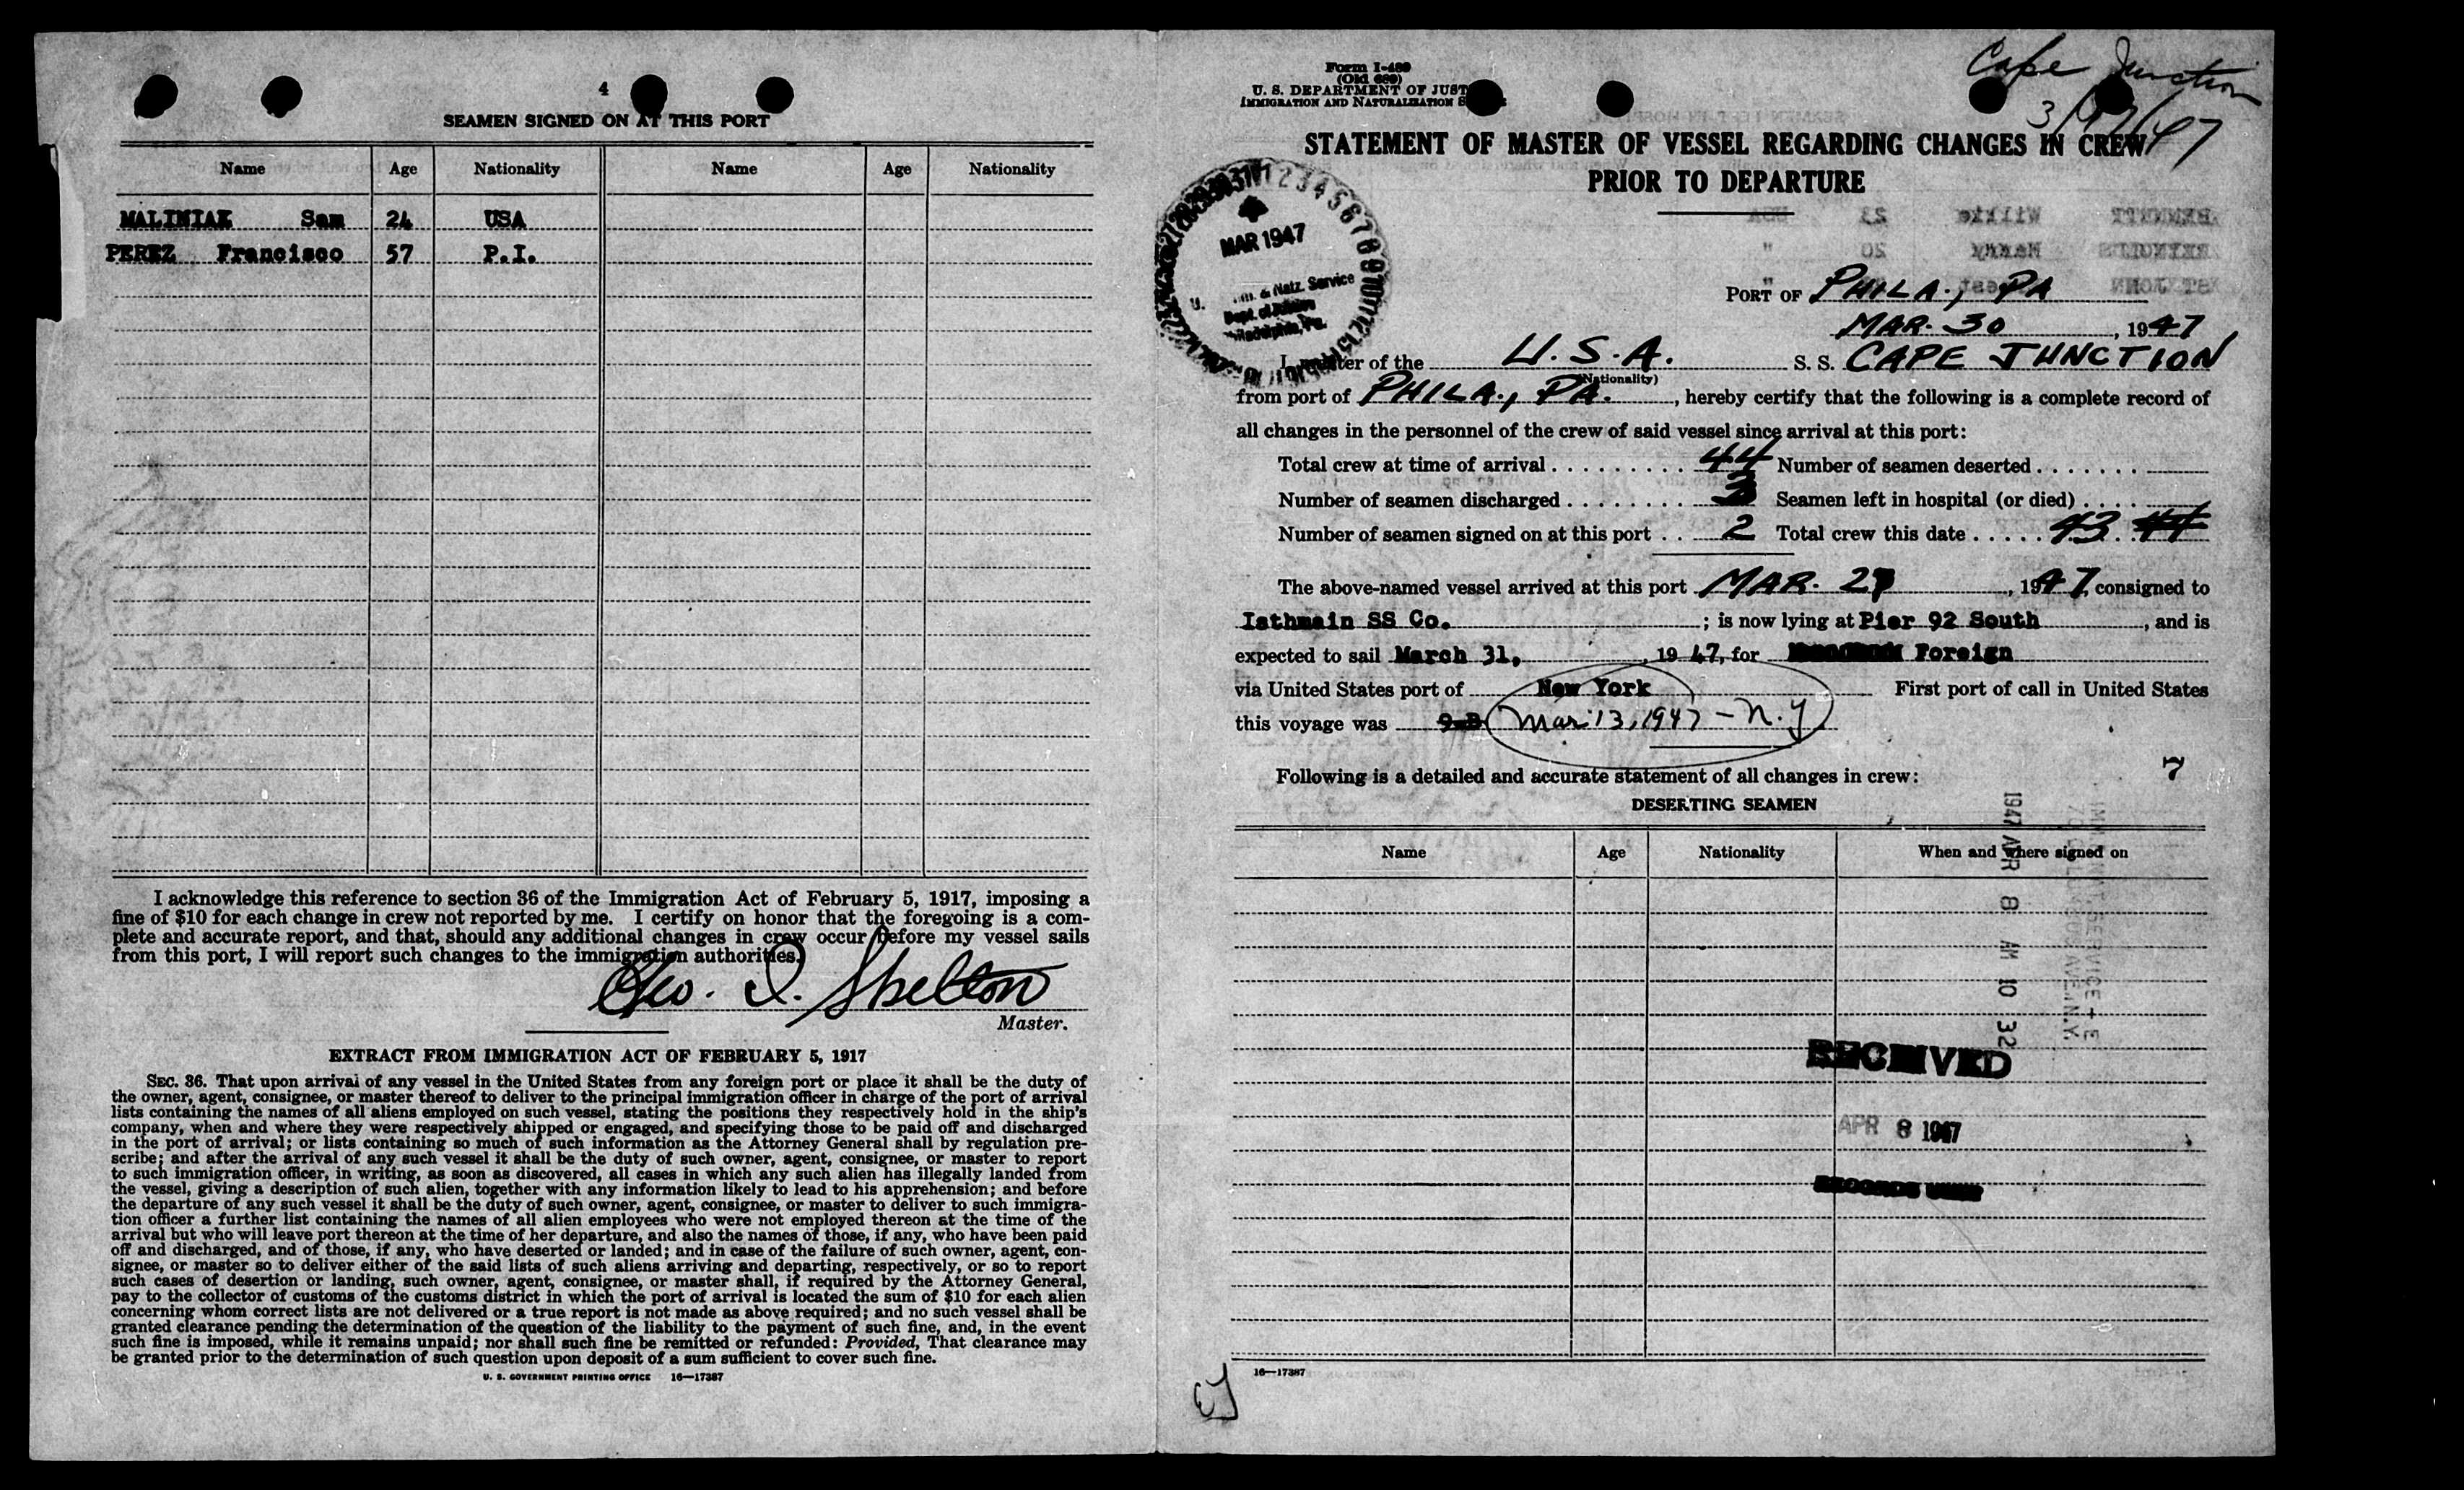 4
SEAMEN SIGNED ON AT THIS PORT
Name Age Nationality Name Age Nationality
MALINIAK Sam 24 USA
PEREZ Francisco 57 P.I.
I acknowledge this reference to section 36 of the Immigration Act of February 5, 1917, imposing a
fine of $10 for each change in crew not reported by me. I certify on honor that the foregoing is a com-
plete and accurate report, and that, should any additional changes in crew occur before my vessel sails
from this port, I will report such changes to the immigration authorities.
Geo. I. Shelton
Master.
EXTRACT FROM IMMIGRATION ACT OF FEBRUARY 5, 1917
SEC. 36. That upon arrival of any vessel in the United States from any foreign port or place it shall be the duty of
the owner, agent, consignee, or master thereof to deliver to the principal immigration officer in charge of the port of arrival
lists containing the names of all aliens employed on such vessel, stating the positions they respectively hold in the ship's
company, when and where they were respectively shipped or engaged, and specifying those to be paid off and discharged
in the port of arrival; or lists containing so much of such information as the Attorney General shall by regulation pre-
scribe; and after the arrival of any such vessel it shall be the duty of such owner, agent, consignee, or master to report
to such immigration officer, in writing, as soon as discovered, all cases in which any such alien has illegally landed from
the vessel, giving a description of such alien, together with any information likely to lead to his apprehension; and before
the departure of any such vessel it shall be the duty of such owner, agent, consignee, or master to deliver to such immigra-
tion officer a further list containing the names of all alien employees who were not employed thereon at the time of the
arrival but who will leave port thereon at the time of her departure, and also the names of those, if any, who have been paid
off and discharged, and of those, if any, who have deserted or landed; and in case of the failure of such owner, agent, con-
signee, or master so to deliver either of the said lists of such aliens arriving and departing, respectively, or so to report
such cases of desertion or landing, such owner, agent, consignee, or master shall, if required by the Attorney General,
pay to the collector of customs of the customs district in which the port of arrival is located the sum of $10 for each alien
concerning whom correct lists are not delivered or a true report is not made as above required; and no such vessel shall be
granted clearance pending the determination of the question of the liability to the payment of such fine, and, in the event
such fine is imposed, while it remains unpaid; nor shall such fine be remitted or refunded: Provided, That clearance may
be granted prior to the determination of such question upon deposit of a sum sufficient to cover such fine.
U. S. GOVERNMENT PRINTING OFFICE 16—17387
Cape Junction
3/17/47
Form I-489
(Old 689)
U. S. DEPARTMENT OF JUST
IMMIGRATION AND NATURALIZATION S
STATEMENT OF MASTER OF VESSEL REGARDING CHANGES IN CREW
PRIOR TO DEPARTURE
MAR 1947
& Natz. Service
Dept. of Justice
Philadelphia, Pa.
PORT OF PHILA., PA
MAR. 30, 1947
I, master of the U. S. A. S. S. CAPE JUNCTION
(Nationality)
from port of PHILA., PA., hereby certify that the following is a complete record of
all changes in the personnel of the crew of said vessel since arrival at this port:
Total crew at time of arrival 44 Number of seamen deserted
Number of seamen discharged 3 Seamen left in hospital (or died)
Number of seamen signed on at this port 2 Total crew this date 43 44
The above-named vessel arrived at this port MAR. 27, 1947, consigned to
Isthmain SS Co. ; is now lying at Pier 92 South, and is
expected to sail March 31, 1947, for Foreign
via United States port of New York First port of call in United States
this voyage was Mar 13, 1947 - N.Y.
Following is a detailed and accurate statement of all changes in crew:
DESERTING SEAMEN
Name Age Nationality When and where signed on
1947 APR 8 AM 10 32
RECEIVED
APR 8 1947
RECORDS UNIT
16—17387